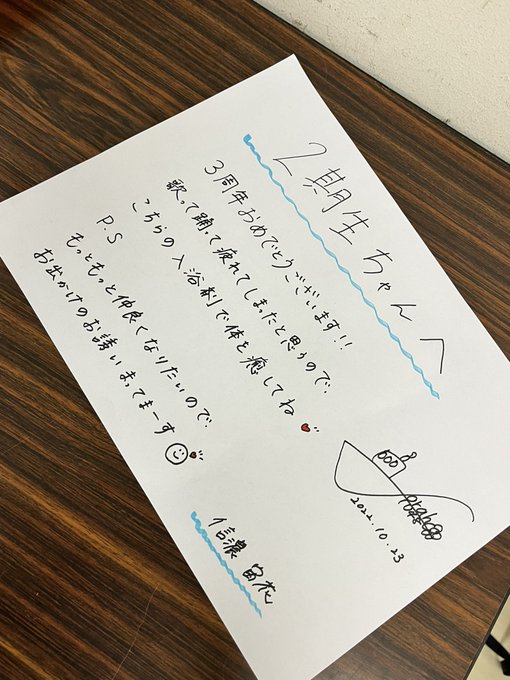 2期生ちゃんへ
3周年おめでとうございます!!
歌って踊って疲れてしまったと思うので、
こちらの入浴剤で体を癒してね
P.S
もっともっと仲良くなりたいので、
お出かけのお誘いまってまーす
2022.10.23
信濃宙花